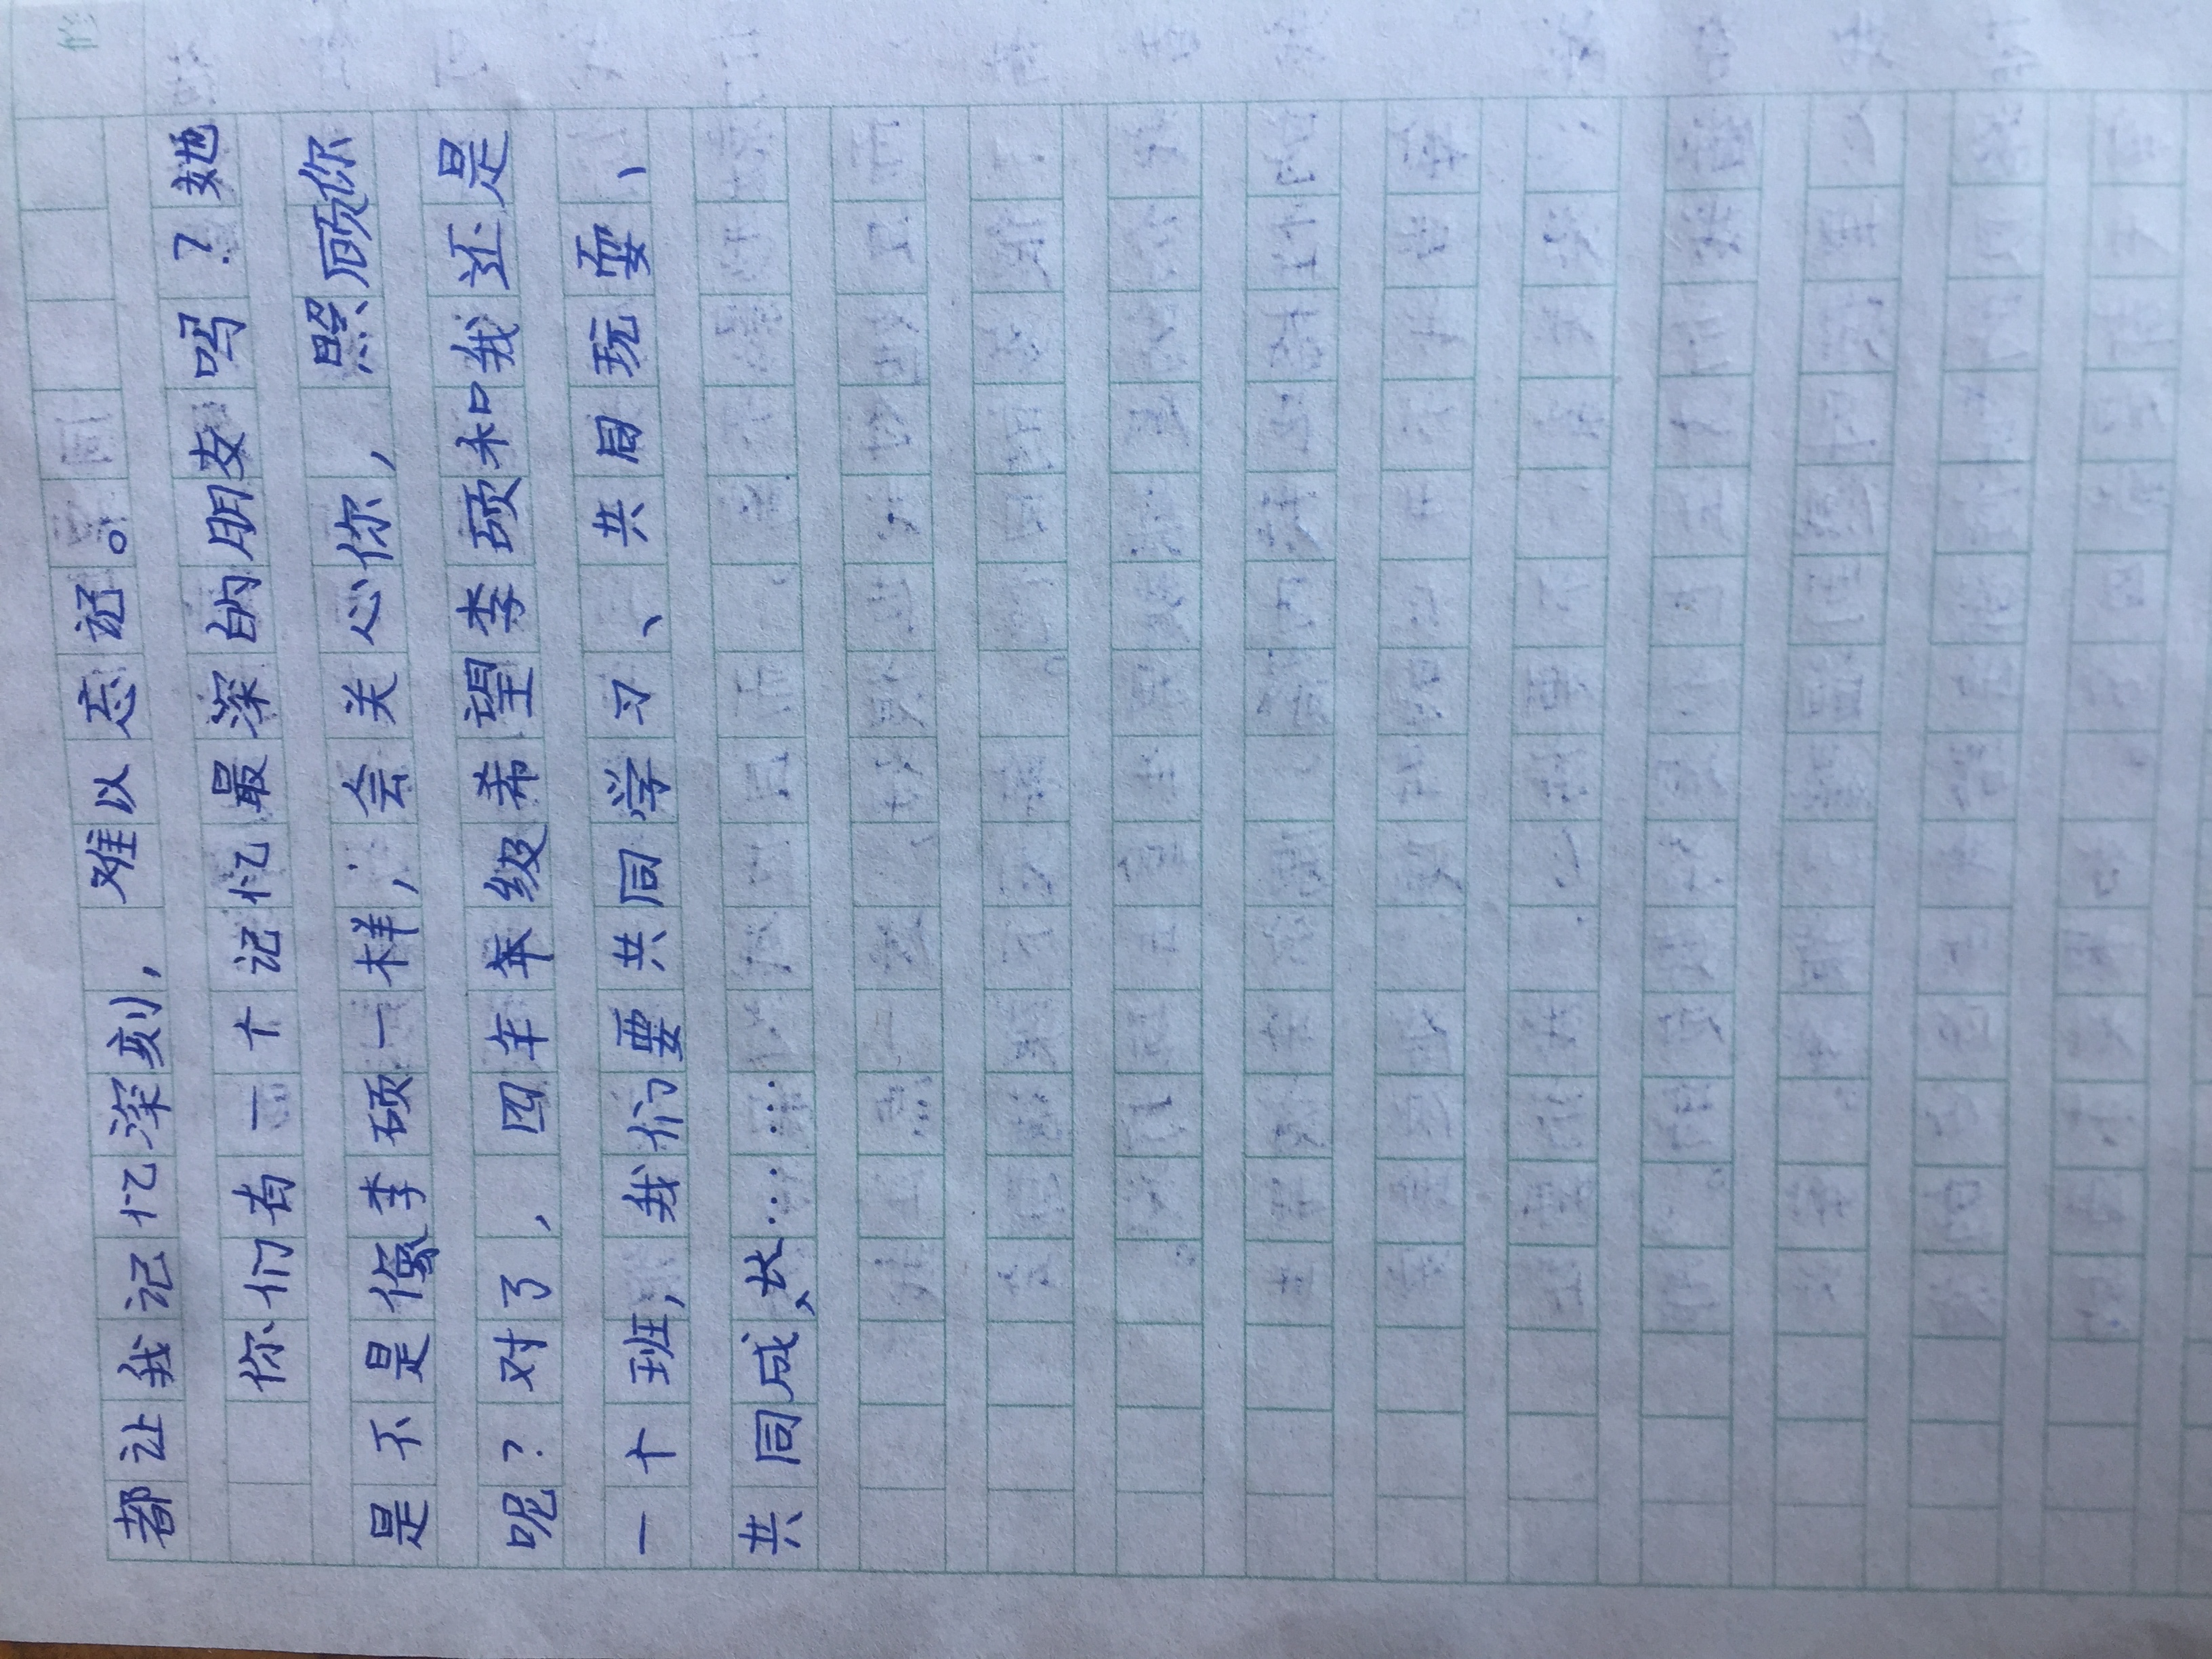 都让我记忆深刻，难以忘记。
你们有一个记忆最深的朋友吗？她
是不是像李硕一样，会关心你，照顾你
呢？对了，四年年级希望李硕和我还是
一个班，我们要共同学习、共同玩耍、
共同成长……